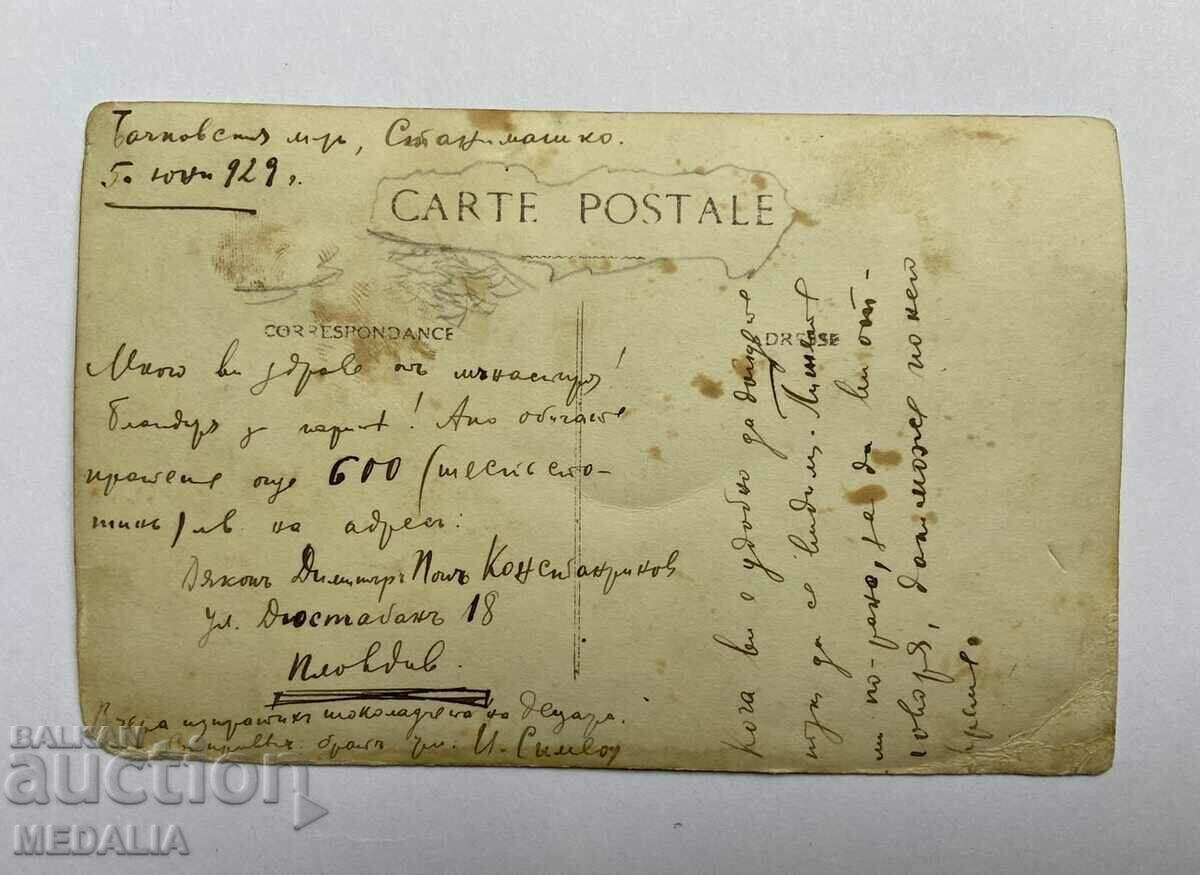 Бачковския м-ръ, Станимашко.
5. юни 929 г.
CARTE POSTALE
CORRESPONDANCE
ADRESSE
Много ви здраве отъ мънастиря!
за пари! Ако обичате
пратете още 600 (шестсто-
тинъ) лв. на адресъ:
Дяконъ Димитъръ Попъ Константинов
ул. Дюстабанъ 18
Пловдив.
Вчера изпратихъ шоколадчета на децата.
братъ ви: И.
Кога ви е удобно да дойдете
тука да се видим. Пишете
ми по-рано, за да ви от-
говоря, дали може по него
време.
BALKAN
auction
MEDALIA